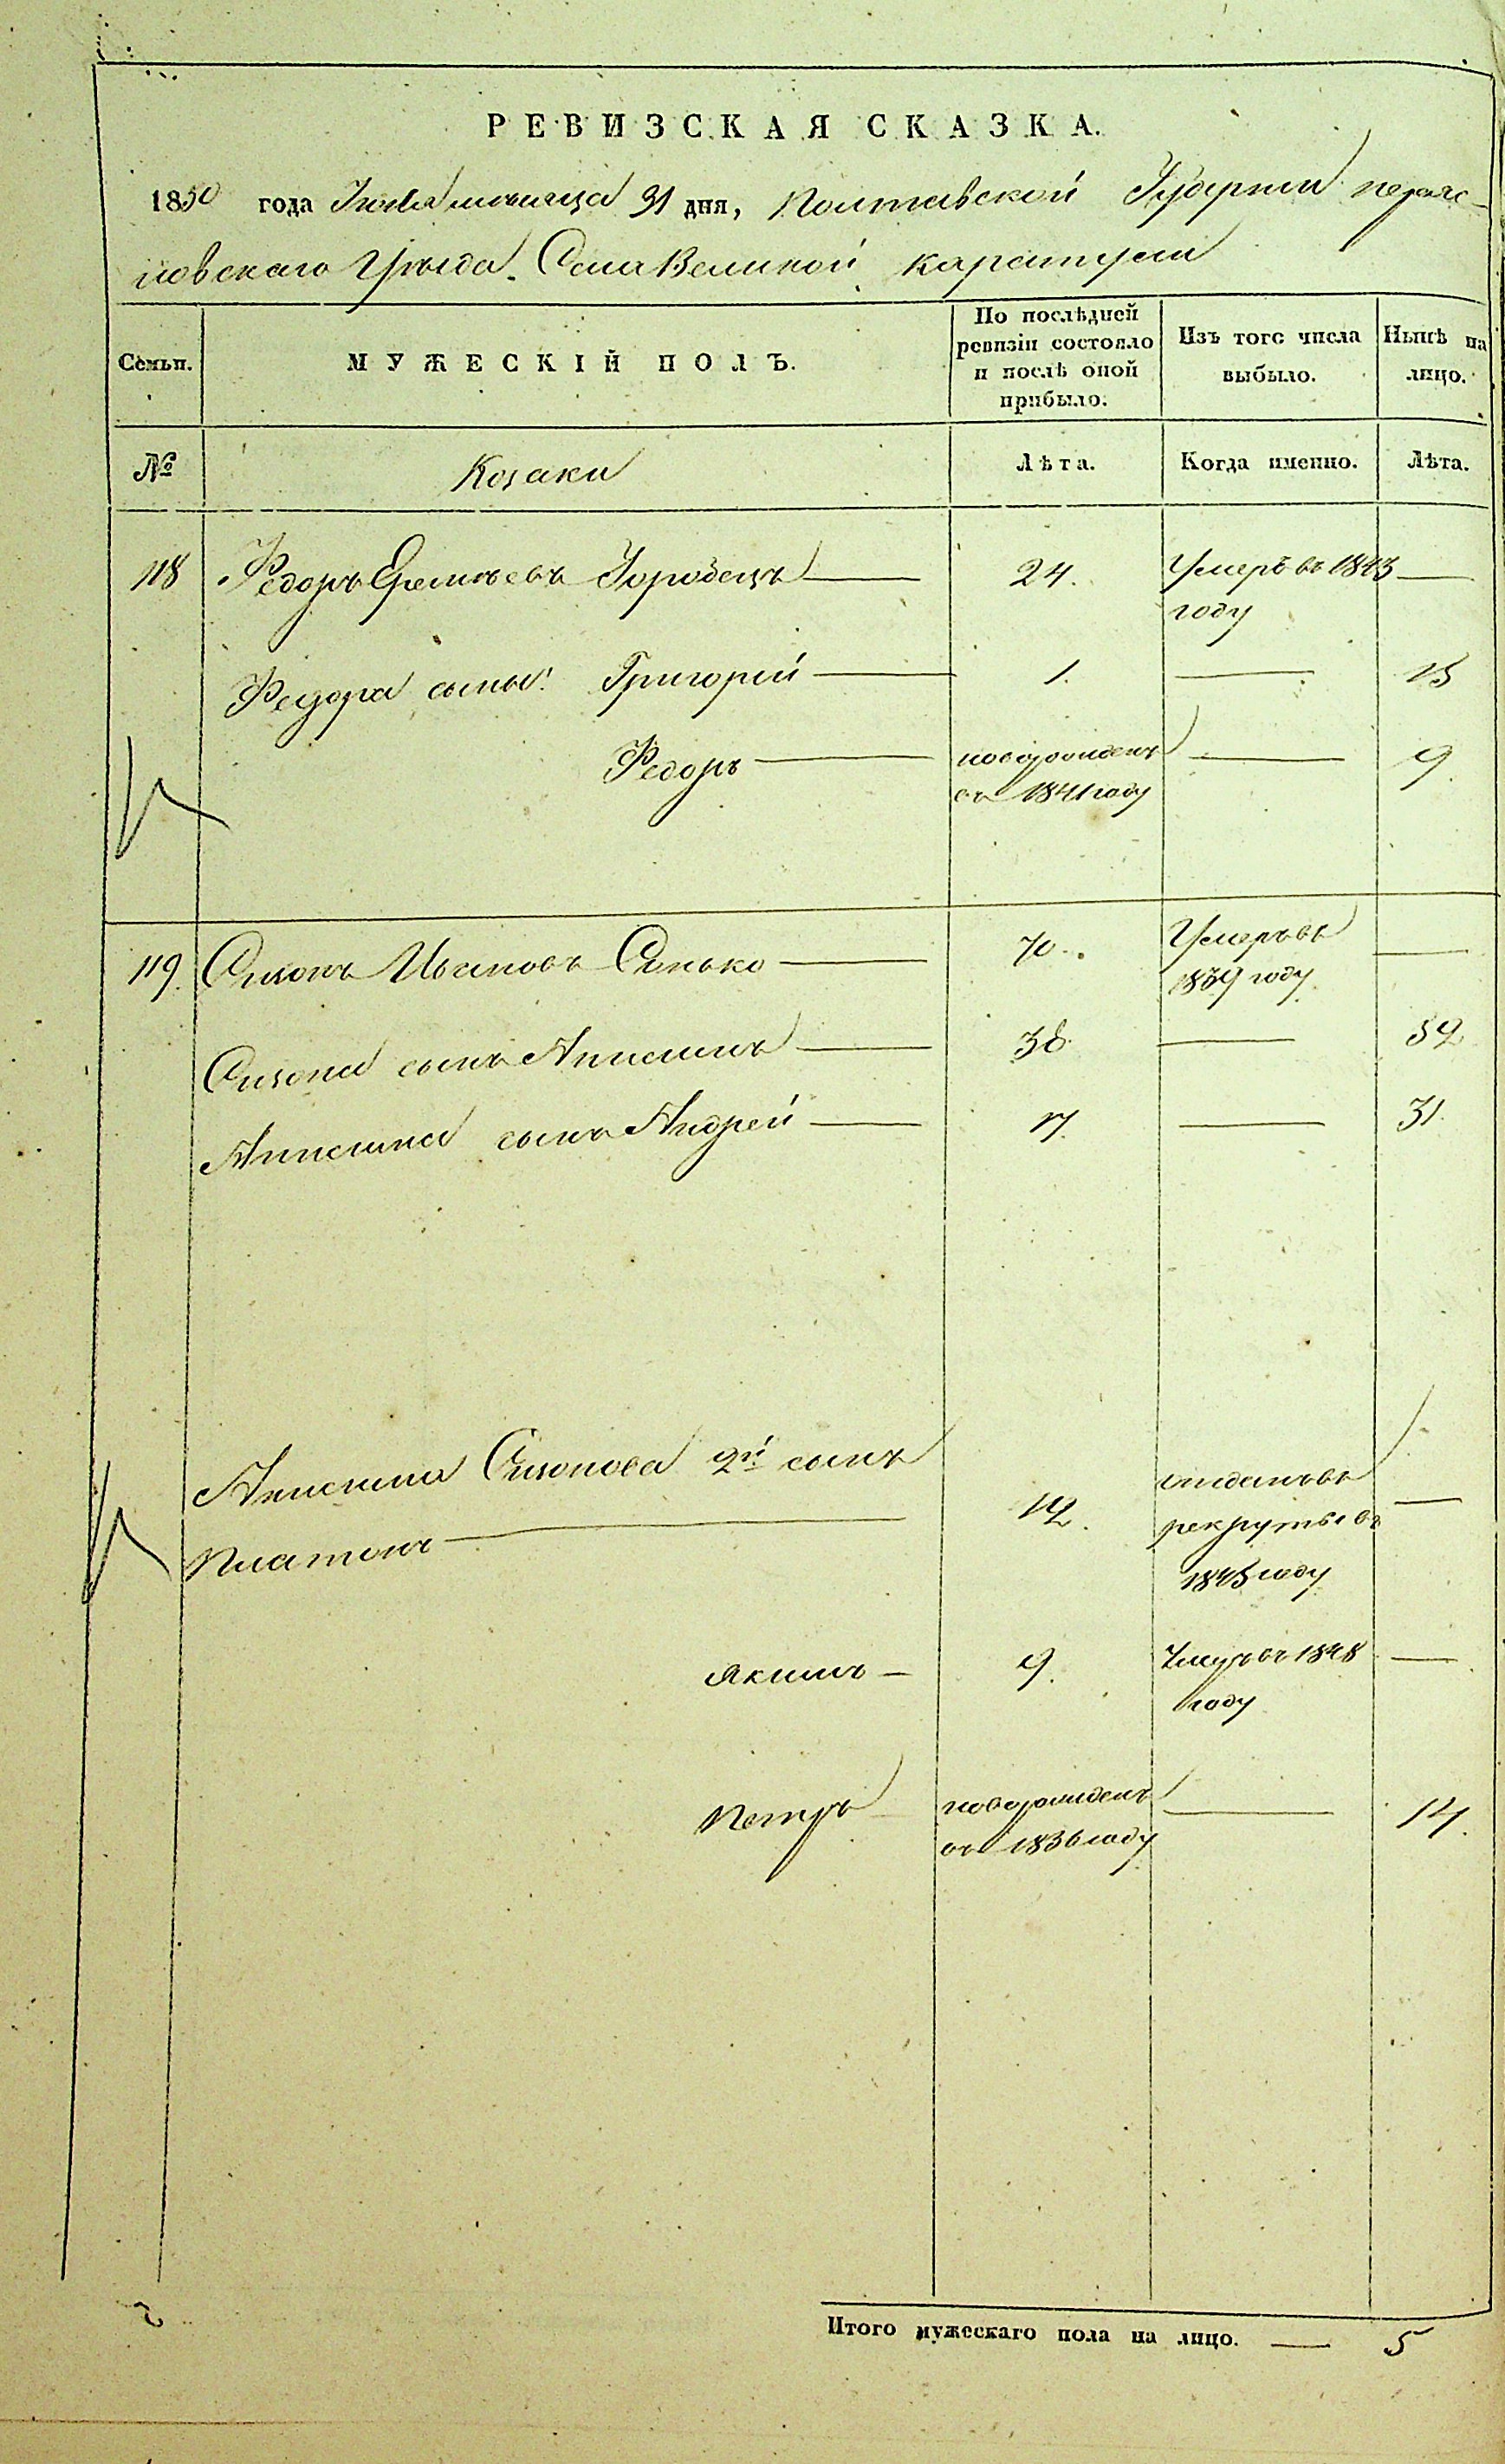 РЕВИЗСКАЯ СКАЗКА.
1850 года Июля месяца 31 дня, Полтавской Губернии переяс-
ловскаго Уѣзда Села Великой каратули
Семьи.
МУЖЕСКІЙ ПОЛЪ.
По послѣдней ревизіи состояло и послѣ оной прибыло.
Изъ того числа выбыло.
Нынѣ на лицо.
№
Козаки
Лѣта.
Когда именно.
Лѣта.
118 Федоръ Еремѣевъ Городецъ 24. Умеръ въ 1843
году
Федора сыны: Григорій 1. 15
Федоръ новорожденъ 9
въ 1841 году
119. Сизонъ Ивановъ Сенько 70. Умеръ въ
1839 году
Сизона сынъ Анисимъ 38 52
Анисима сынъ Андрей 17. 31.
Анисима Сизонова 2й сынъ
Платонъ 12. отданъ въ
рекруты въ
1845 году
Якимъ 9. Умеръ въ 1848
году
Петръ новорожденъ 14.
въ 1836 году
Итого мужескаго пола на лицо. 5